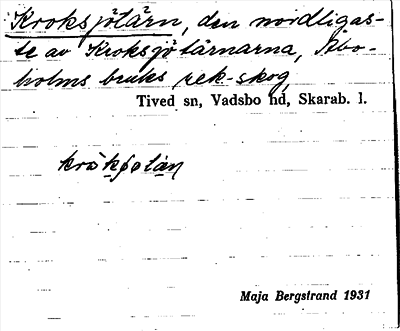 Kroksjötärn, den nordligas-
te av Kroksjötärnarna, Åbo-
holms bruks rek-skog,
Tived sn, Vadsbo hd, Skarab. l.
Maja Bergstrand 1931